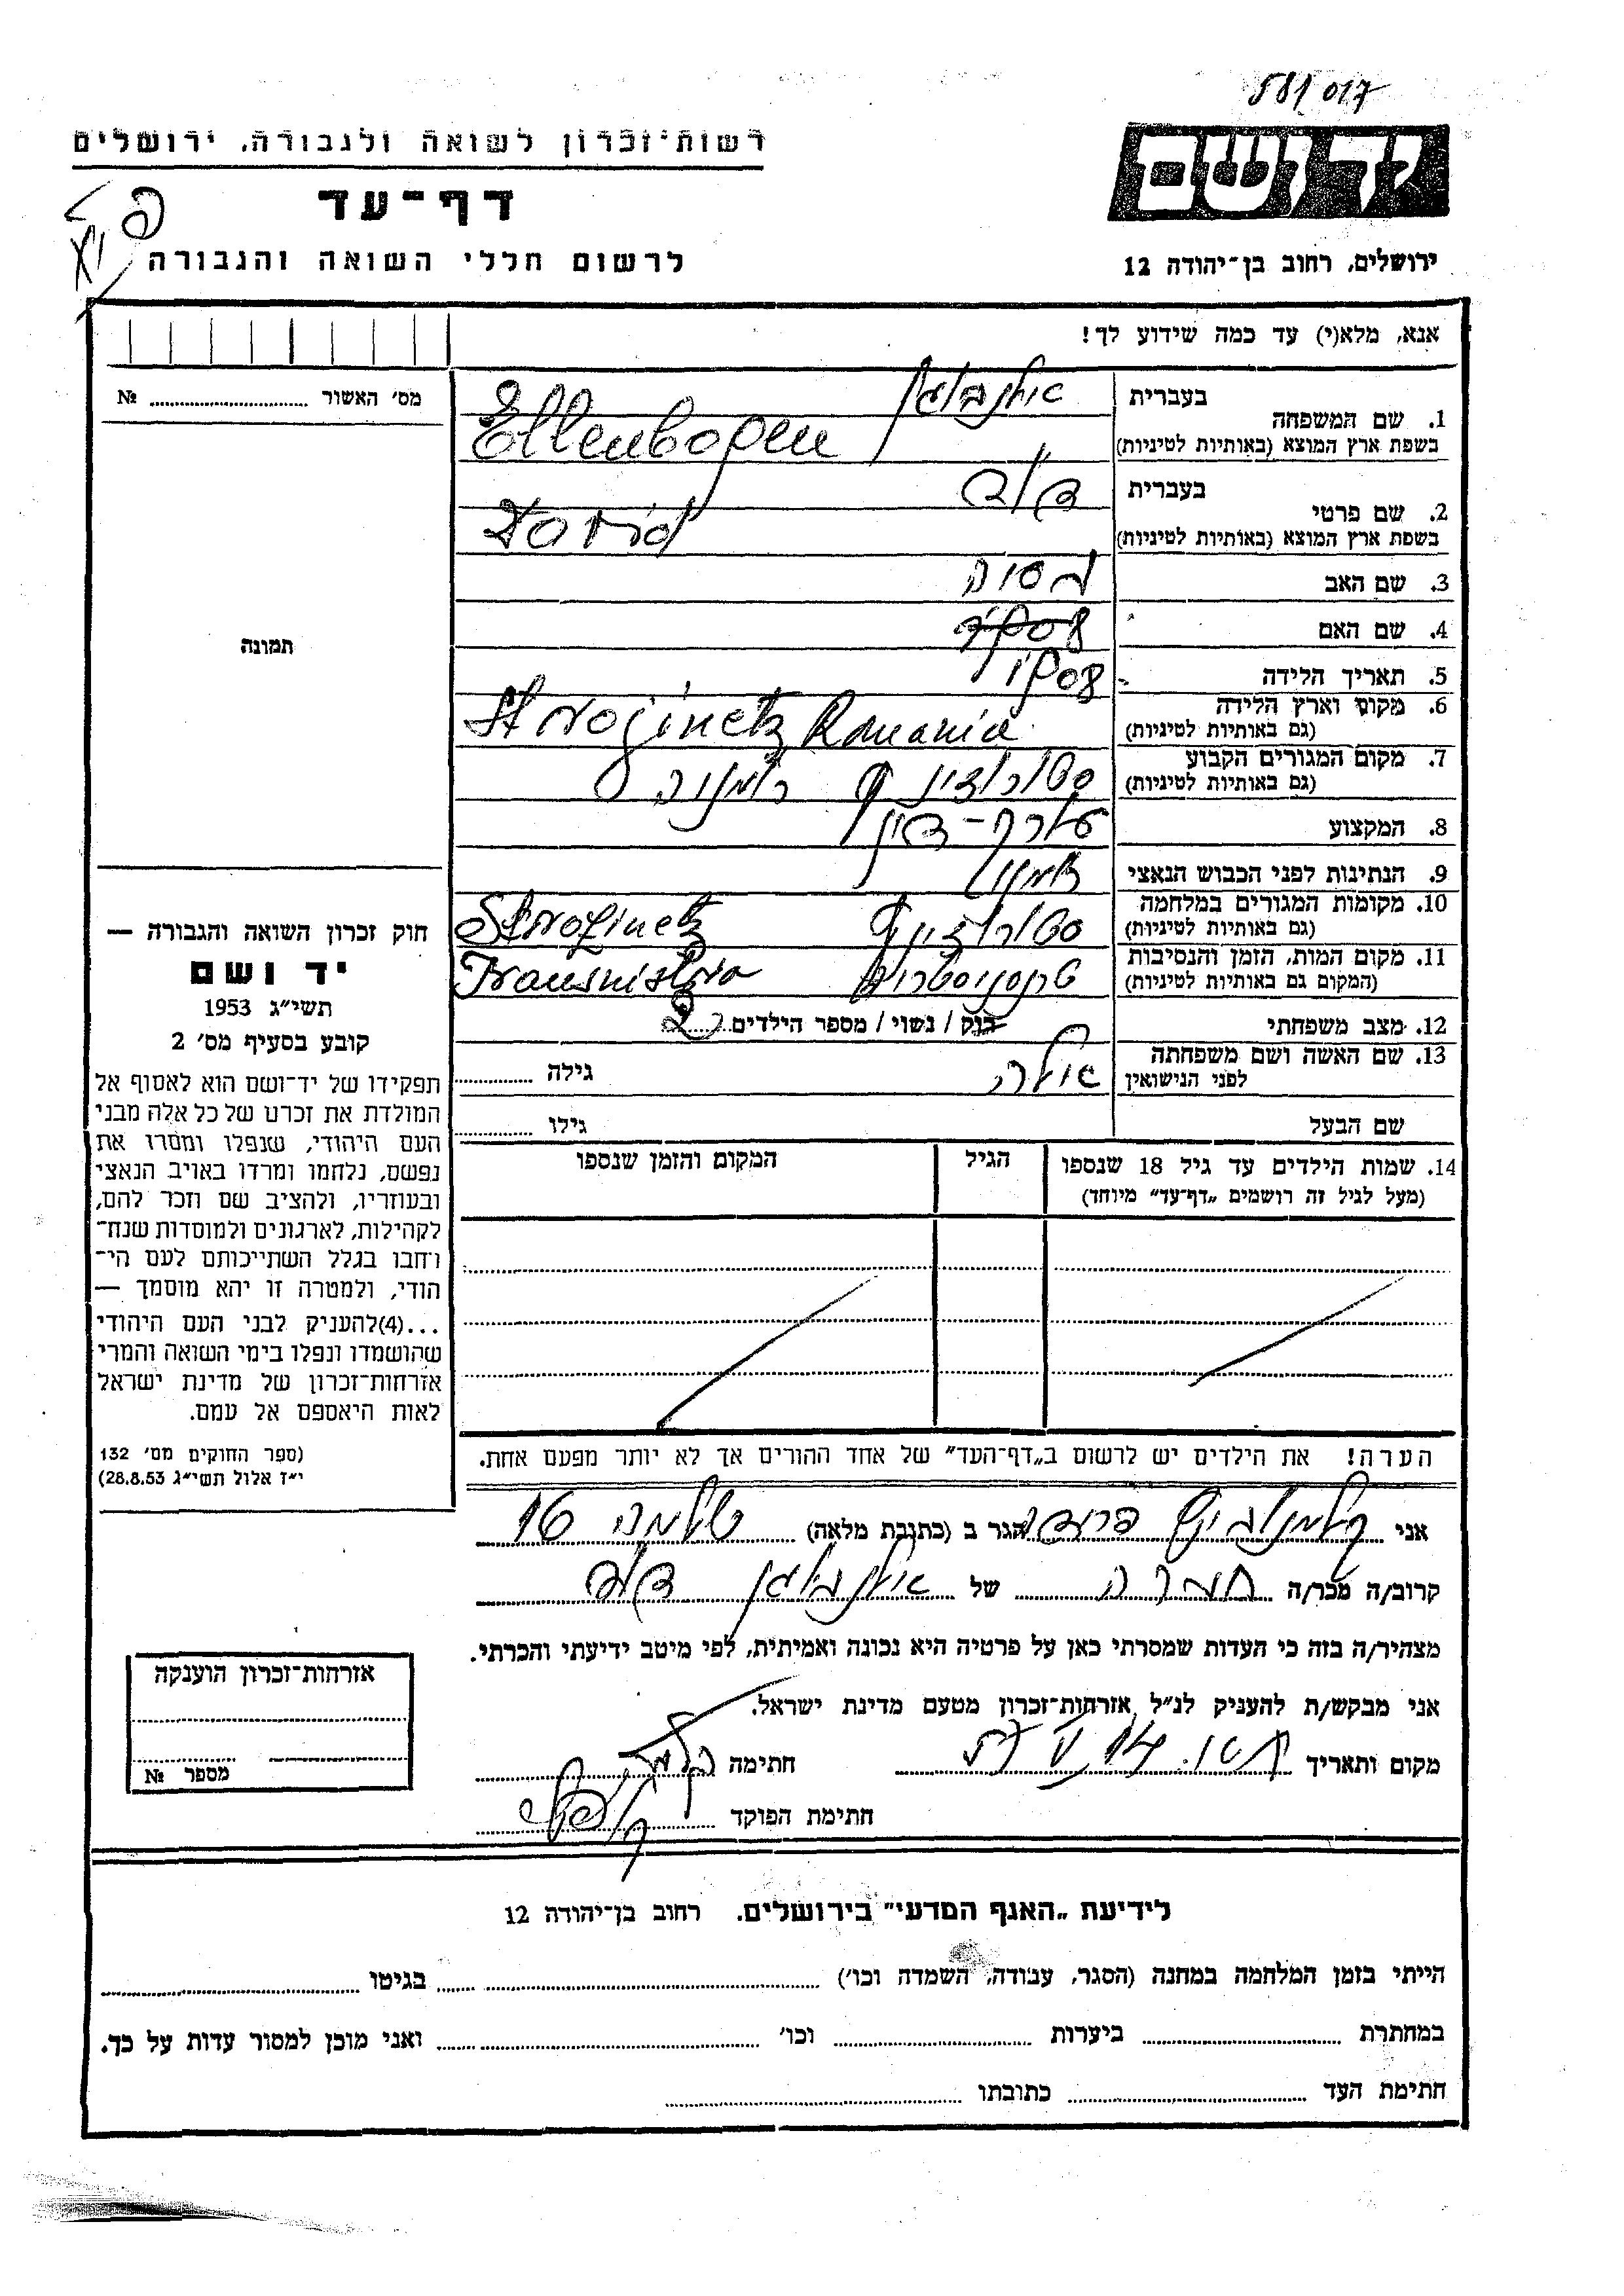 581017
רשות־זכרון לשואה ולגבורה, ירושלים
יד ושם
דף־עד
לרשום חללי השואה והגבורה
ירושלים, רחוב בן־יהודה 12
אנא, מלא(י) עד כמה שידוע לך!
מס׳ האשור № 
תמונה
1. שם המשפחה
בעברית אילנבוגן
בשפת ארץ המוצא (באותיות לטיניות) Ellenbogen
2. שם פרטי
בעברית דוד
בשפת ארץ המוצא (באותיות לטיניות) David
3. שם האב
4. שם האם
5. תאריך הלידה
6. מקום וארץ הלידה (גם באותיות לטיניות) Strojinetz Romania
7. מקום המגורים הקבוע (גם באותיות לטיניות) סטרוזינץ רומניה
8. המקצוע עורך-דין
9. הנתינות לפני הכבוש הנאצי
10. מקומות המגורים במלחמה (גם באותיות לטיניות) סטרוזינץ Strojinetz
11. מקום המות, הזמן והנסיבות (המקום גם באותיות לטיניות) טרנסניסטריה Transnistria
12. מצב משפחתי רוק / נשוי / מספר הילדים 2
13. שם האשה ושם משפחתה לפני הנישואין גילה
שם הבעל גילו
14. שמות הילדים עד גיל 18 שנספו הגיל המקום והזמן שנספו
(מעל לגיל זה רושמים „דף־עד” מיוחד)
הערה! את הילדים יש לרשום ב„דף־העד” של אחד ההורים אך לא יותר מפעם אחת.
אני הגר ב (כתובת מלאה) 16
קרוב/ה מכר/ה של אילנבוגן דוד
מצהיר/ה בזה כי העדות שמסרתי כאן על פרטיה היא נכונה ואמיתית, לפי מיטב ידיעתי והכרתי.
אני מבקש/ת להעניק לנ״ל אזרחות־זכרון מטעם מדינת ישראל.
מקום ותאריך חתימה
חתימת הפוקד
חוק זכרון השואה והגבורה —
יד ושם
תשי״ג 1953
קובע בסעיף מס׳ 2
תפקידו של יד־ושם הוא לאסוף אל
המולדת את זכרם של כל אלה מבני
העם היהודי, שנפלו ומסרו את
נפשם, נלחמו ומרדו באויב הנאצי
ובעוזריו, ולהציב שם וזכר להם,
לקהילות, לארגונים ולמוסדות שנח־
רבו בגלל השתייכותם לעם הי־
הודי, ולמטרה זו יהא מוסמך —
...(4)להעניק לבני העם היהודי
שהושמדו ונפלו בימי השואה והמרי
אזרחות־זכרון של מדינת ישראל
לאות היאספם אל עמם.
(ספר החוקים מס׳ 132
י״ז אלול תשי״ג 28.8.53)
אזרחות־זכרון הוענקה
מספר №
לידיעת „האגף המדעי” בירושלים. רחוב בן־יהודה 12
הייתי בזמן המלחמה במחנה (הסגר, עבודה, השמדה וכו׳) בגיטו
במחתרת ביערות וכו׳ ואני מוכן למסור עדות על כך.
חתימת העד כתובתו